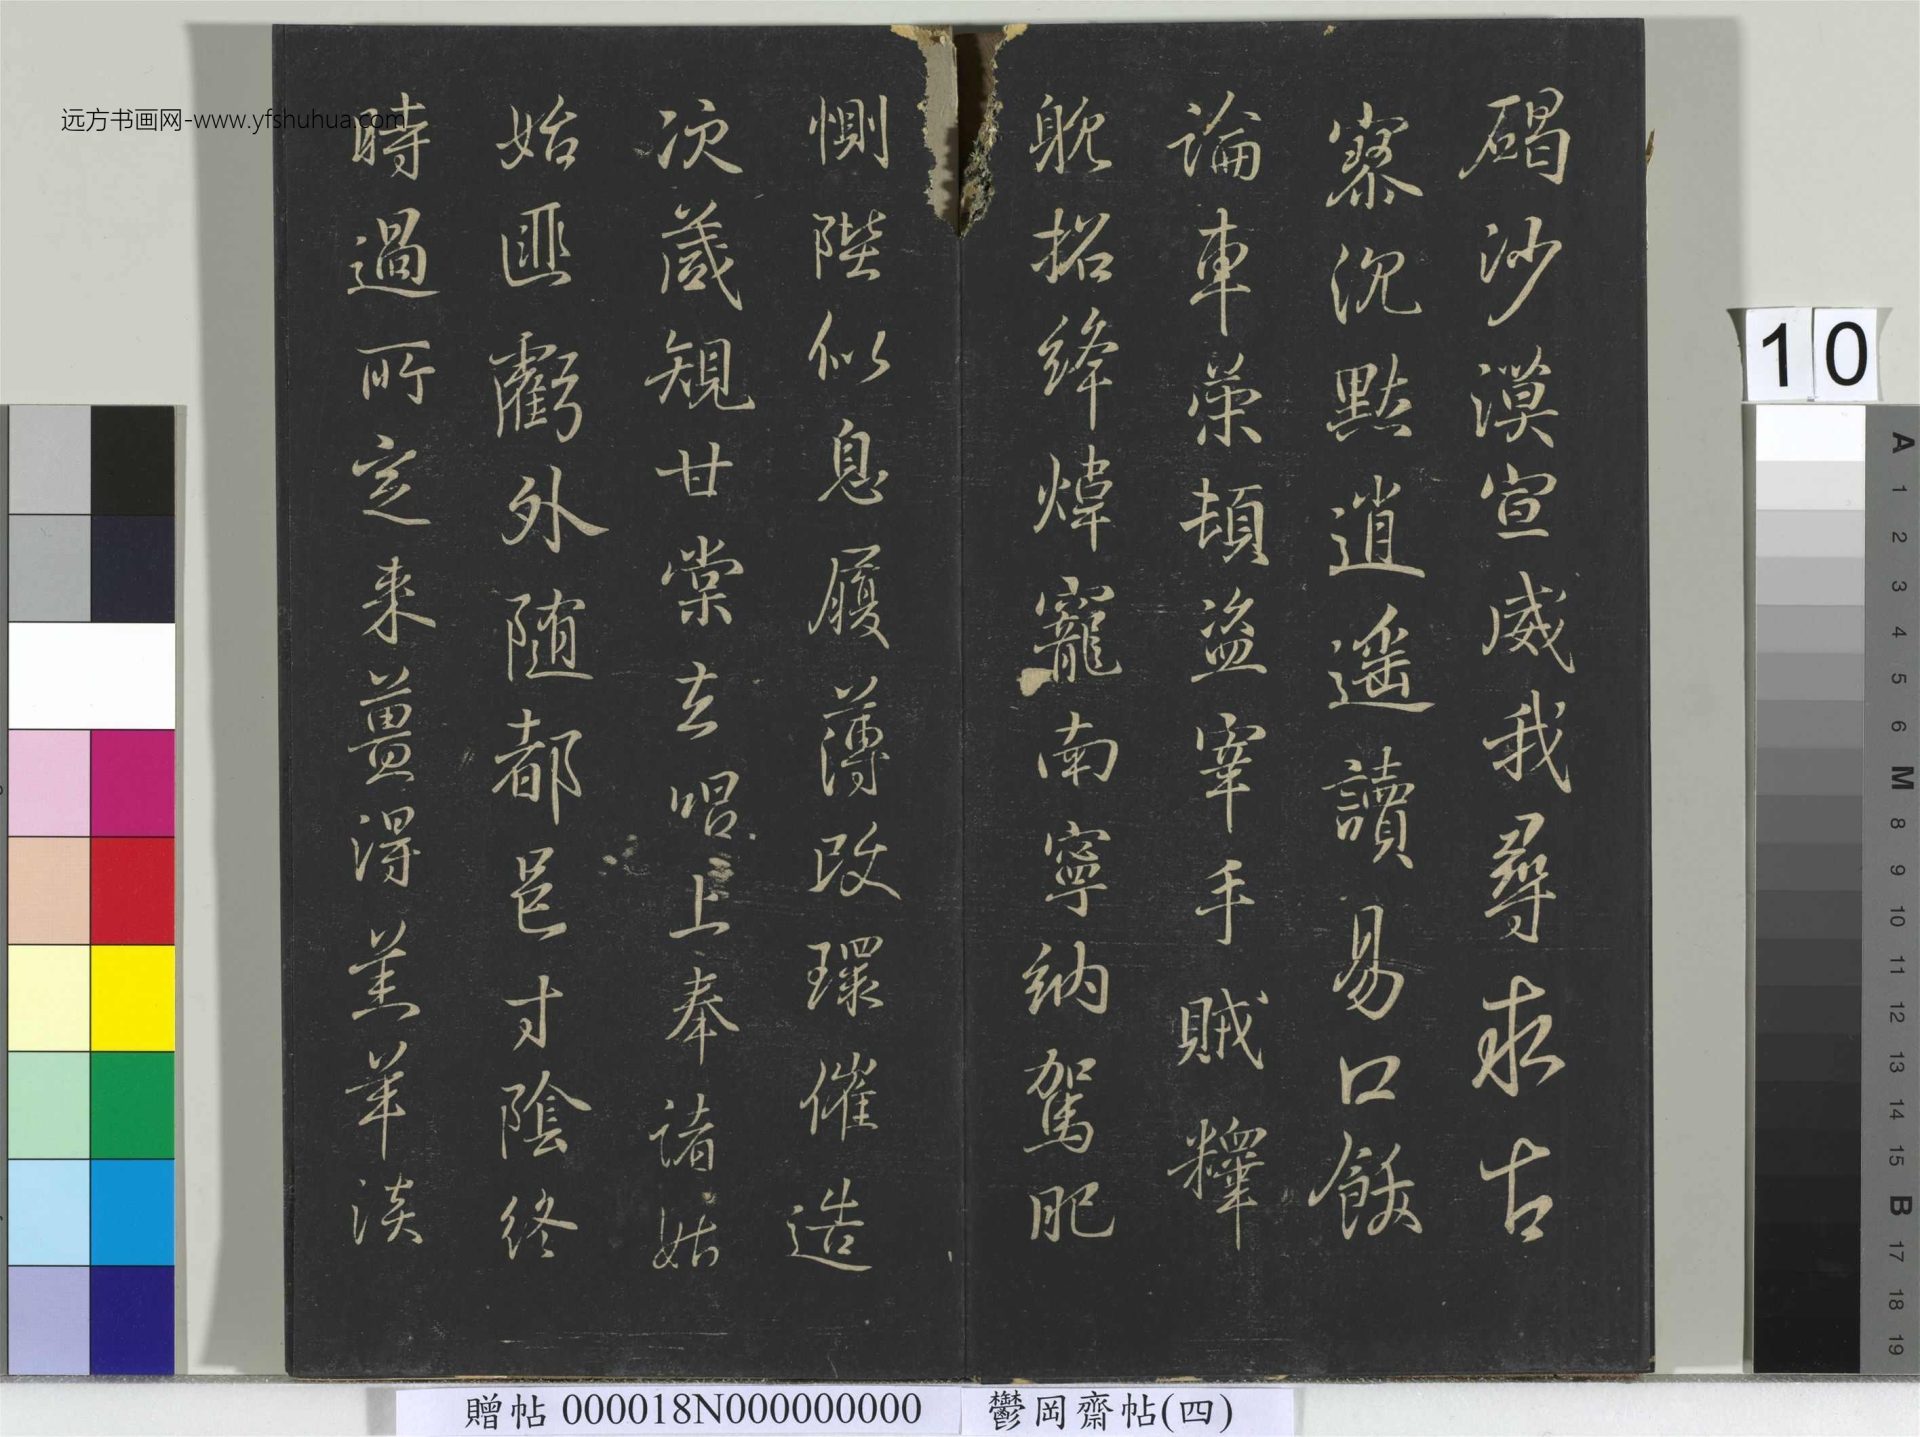 远方书画网-www.yfshuhua.com
碣沙漠宣威我尋求古
寥沉默逍遥讀易口飫
論車荣頓盗宰手賊釋
躭招絳煒寵南寧納駕肥
惻陛似息履薄改環催造
次箴規甘棠去唱上奉諸姑
始匪虧外随都邑寸陰終
時過所定来薑得羔羊淡
10
A
1
2
3
4
5
6
M
8
9
10
11
12
13
14
15
B
17
18
19
贈帖 000018N000000000 鬱岡齋帖(四)